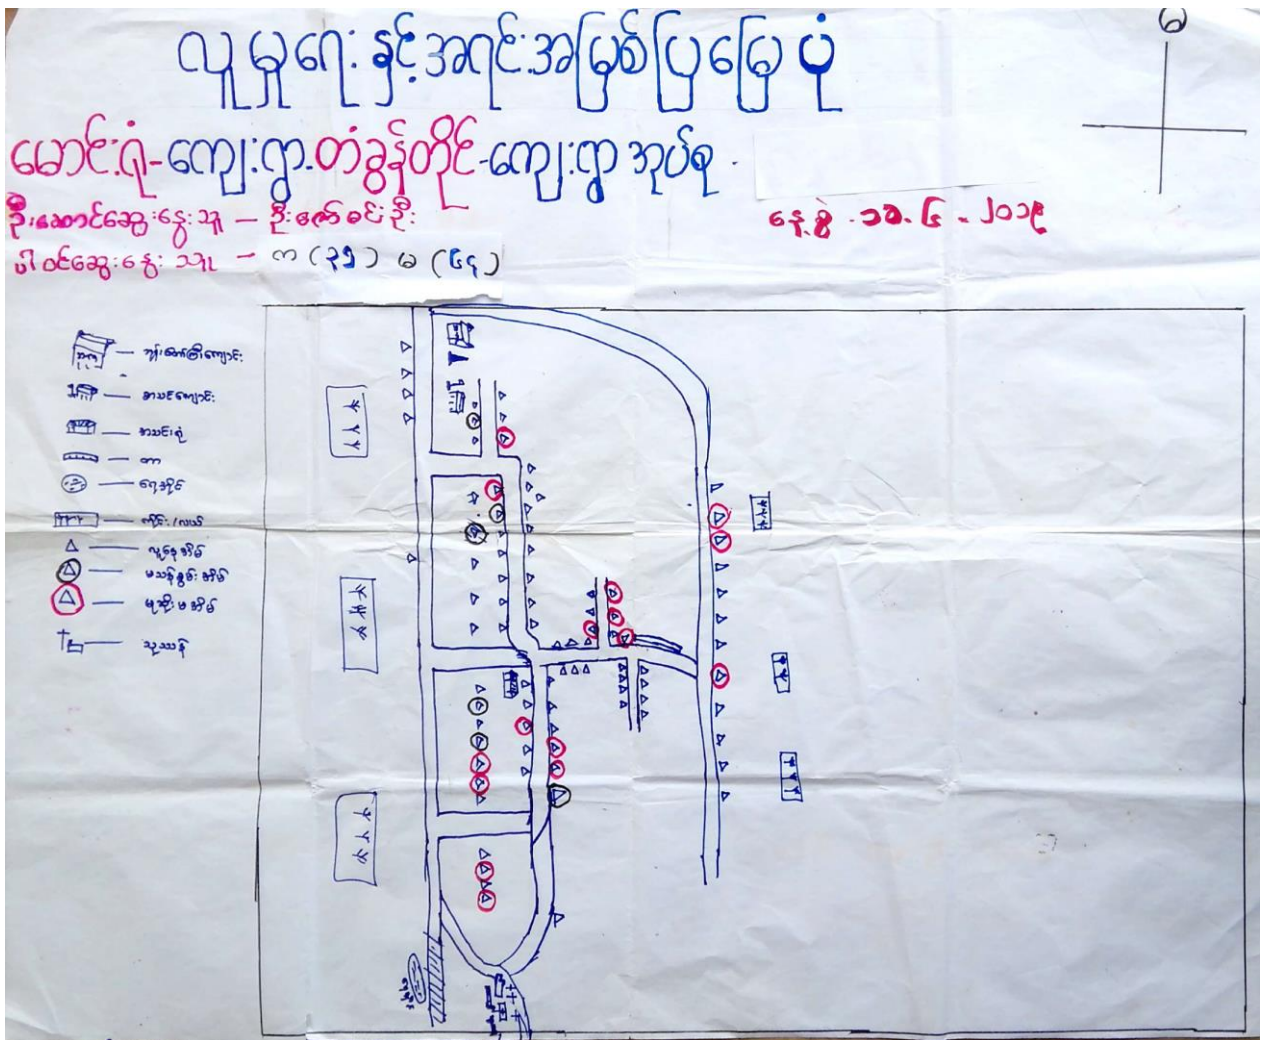 မ
လူမှုရေးနှင့်အရင်းအမြစ်ပြမြေပုံ
မောင်းဂုံ-ကျေးရွာ.တံခွန်တိုင်-ကျေးရွာအုပ်စု.
ဦးဆောင်ဆွေးနွေးသူ – ဦးဇော်ဝင်းဦး
နေ့စွဲ . ၁၁. ၆ . ၂၀၁၉
ပါဝင်ဆွေးနွေးသူ – က (၃၅) မ (၆၄)
– ဘုန်းတော်ကြီးကျောင်း
– စာသင်ကျောင်း
– အသင်းရုံ
– တာ
– ရေအိုင်
– ကိုင်း/လယ်
– လူနေအိမ်
– မသန်စွမ်းအိမ်
– မုဆိုးမအိမ်
– သုဿန်